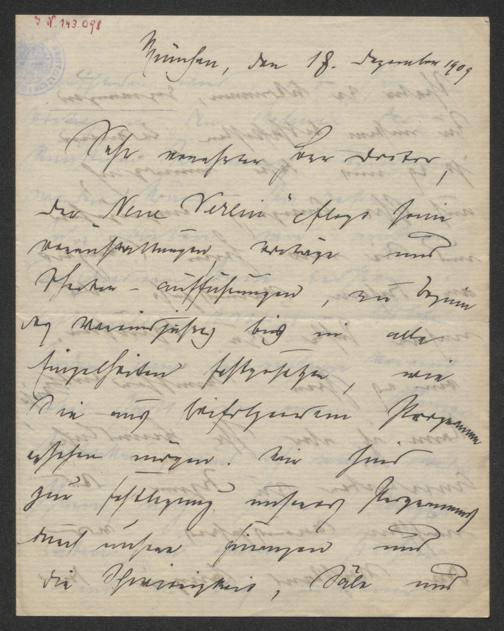 I.N. 143.098
München, den 18. Dezember 1909
Sehr verehrter Herr Doctor,
der „Neue Verein“ pflegt seine
Veranstaltungen, Vorträge und
Theater-Aufführungen, zu Beginn
des Vereinsjahres bis in alle
Einzelheiten festzusetzen, wie
Sie aus beifolgendem Programm
ersehen mögen. Wir sind
zur Festlegung unseres Programms
durch unsere Satzungen und
die Schwierigkeit, Säle und